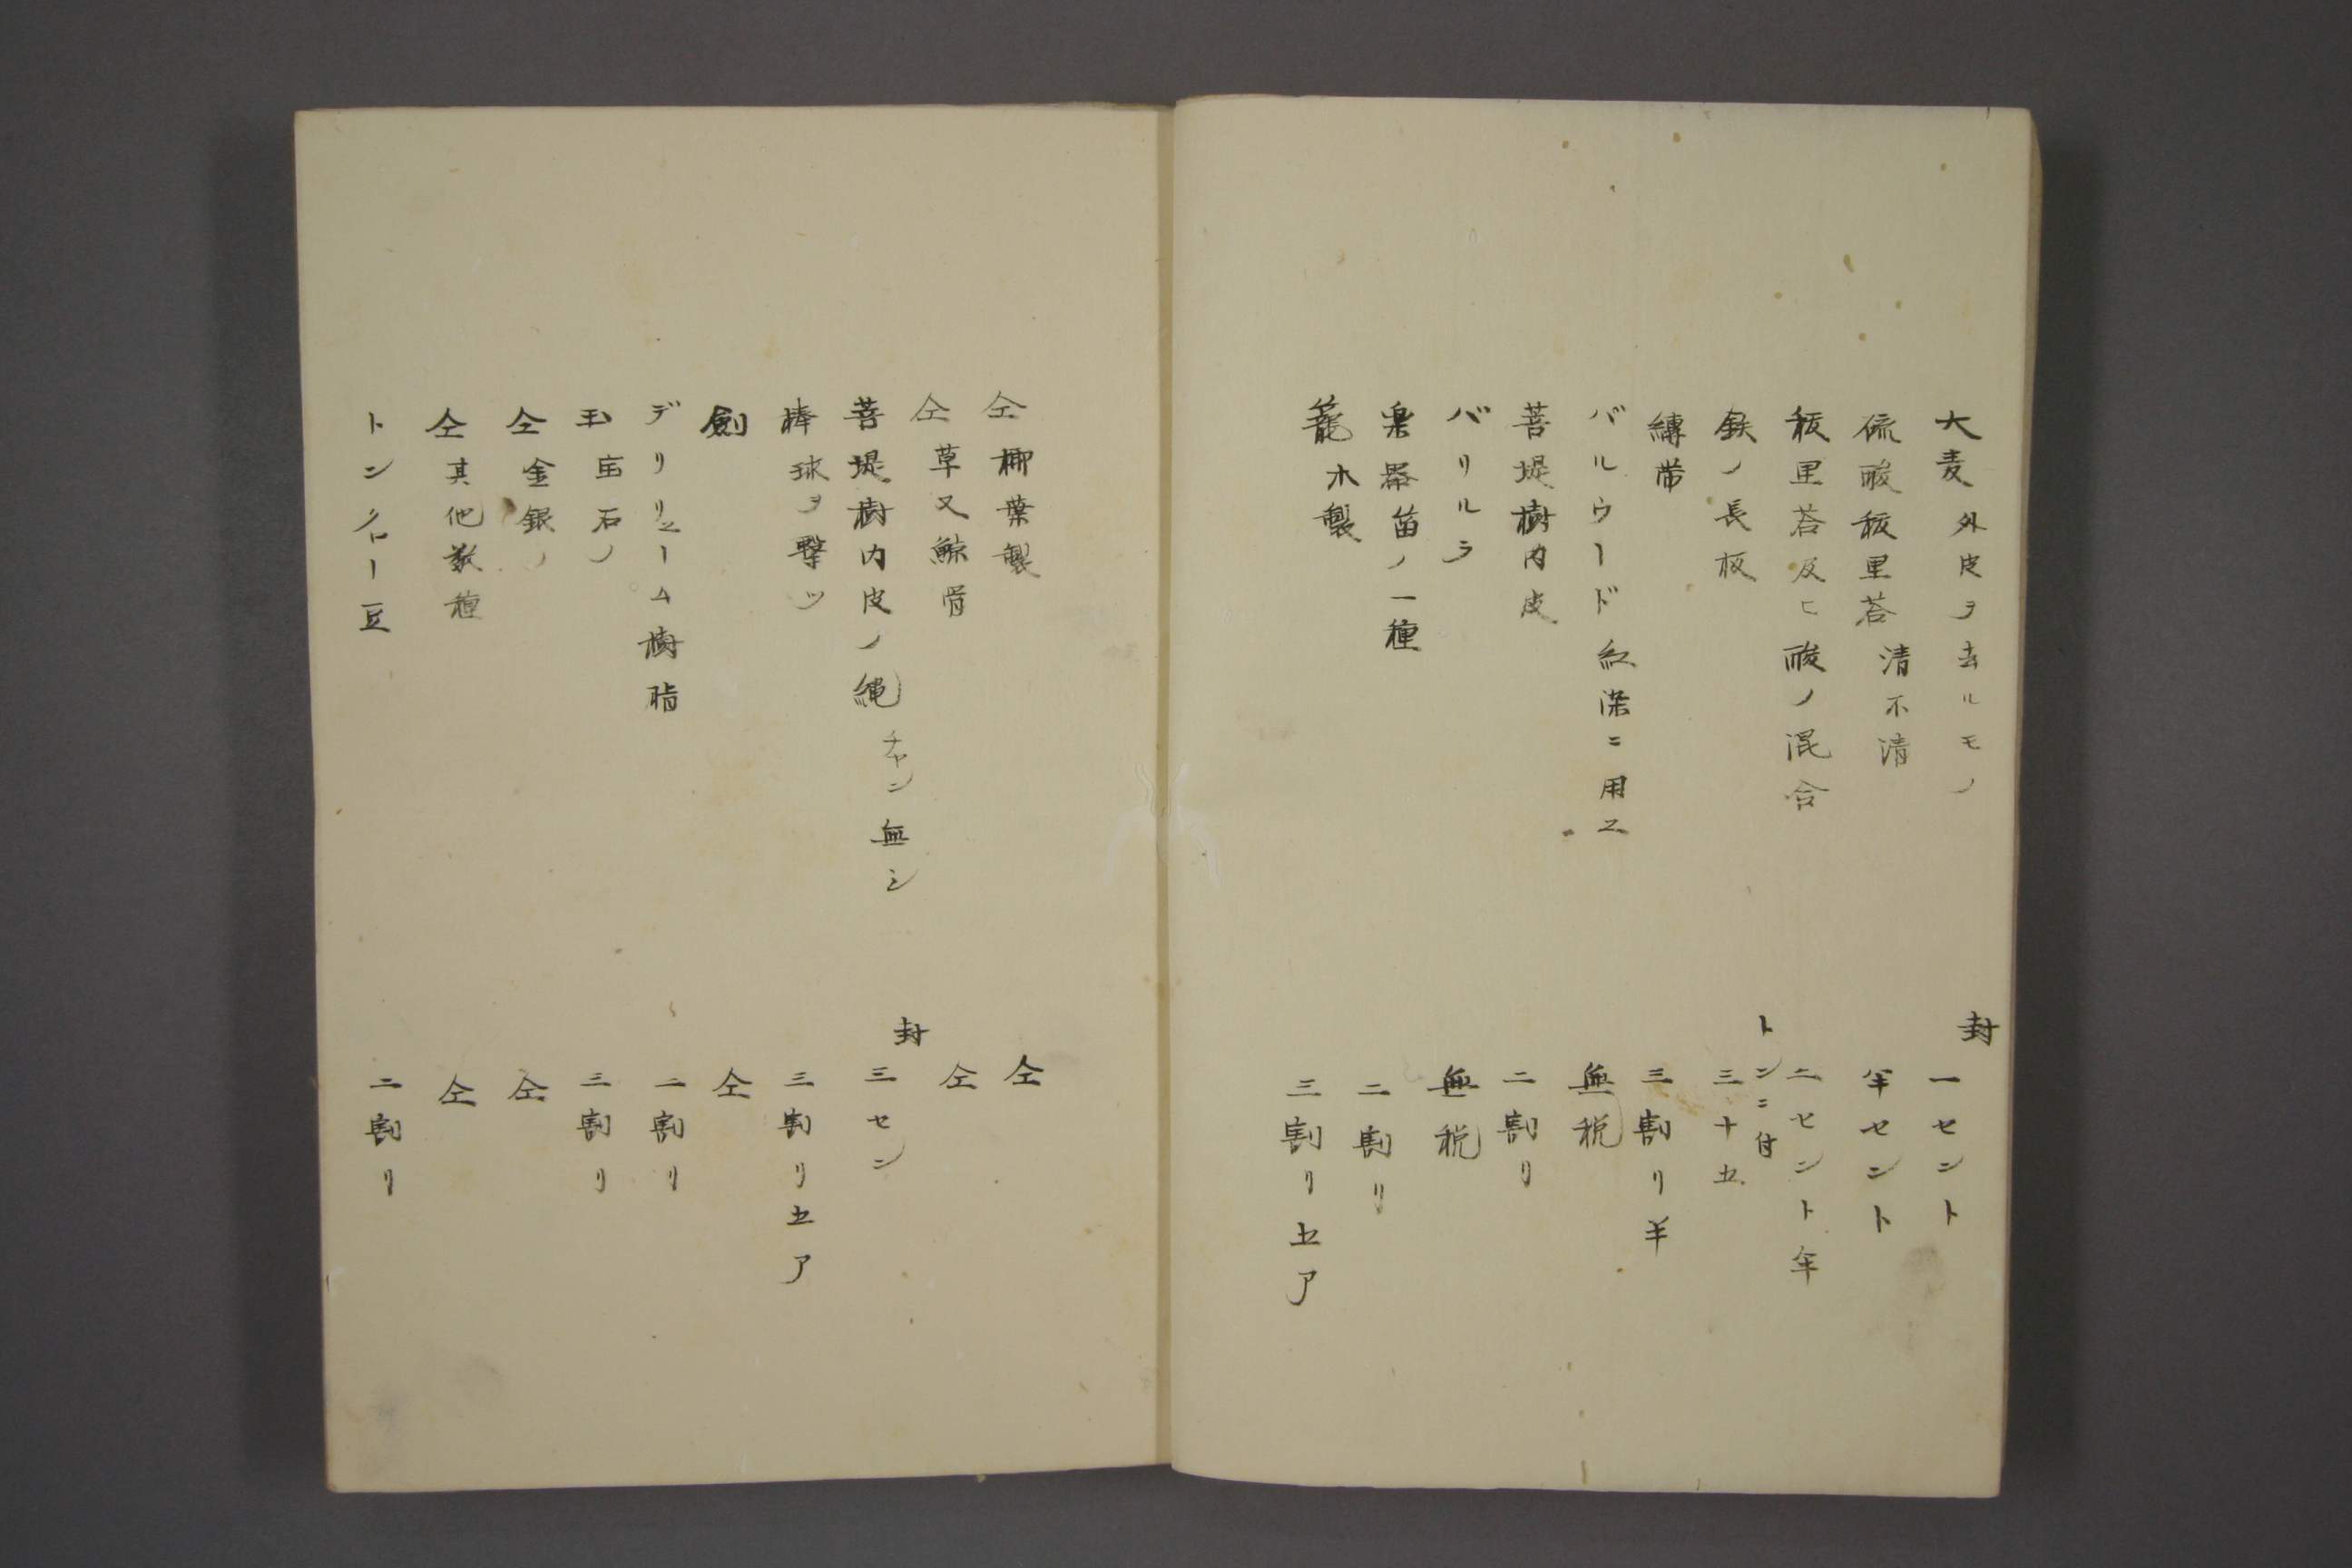 大麦外皮ヲ去ルモノ 封一セント
硫酸𥞴里荅清不清 半セント
𥞴里荅及ヒ酸ノ混合 二セント半
鉄ノ長板 トンニ付三十五
縛帯 三割リ半
バルウード紅染ニ用ユ 無税
菩堤樹内皮 二割リ
バリルラ 無税
楽器笛ノ一種 二割リ
籠木製 三割リ五ア
仝柳葉製 仝
仝草又鯨骨 仝
菩堤樹内皮ノ縄チャン無シ 封三セン
棒球ヲ撃ツ 三割リ五ア
劍 仝
デリリユーム樹脂 二割リ
玉宝石ノ 三割リ
仝金銀ノ 仝
仝其他数種 仝
トンクロー豆 二割リ